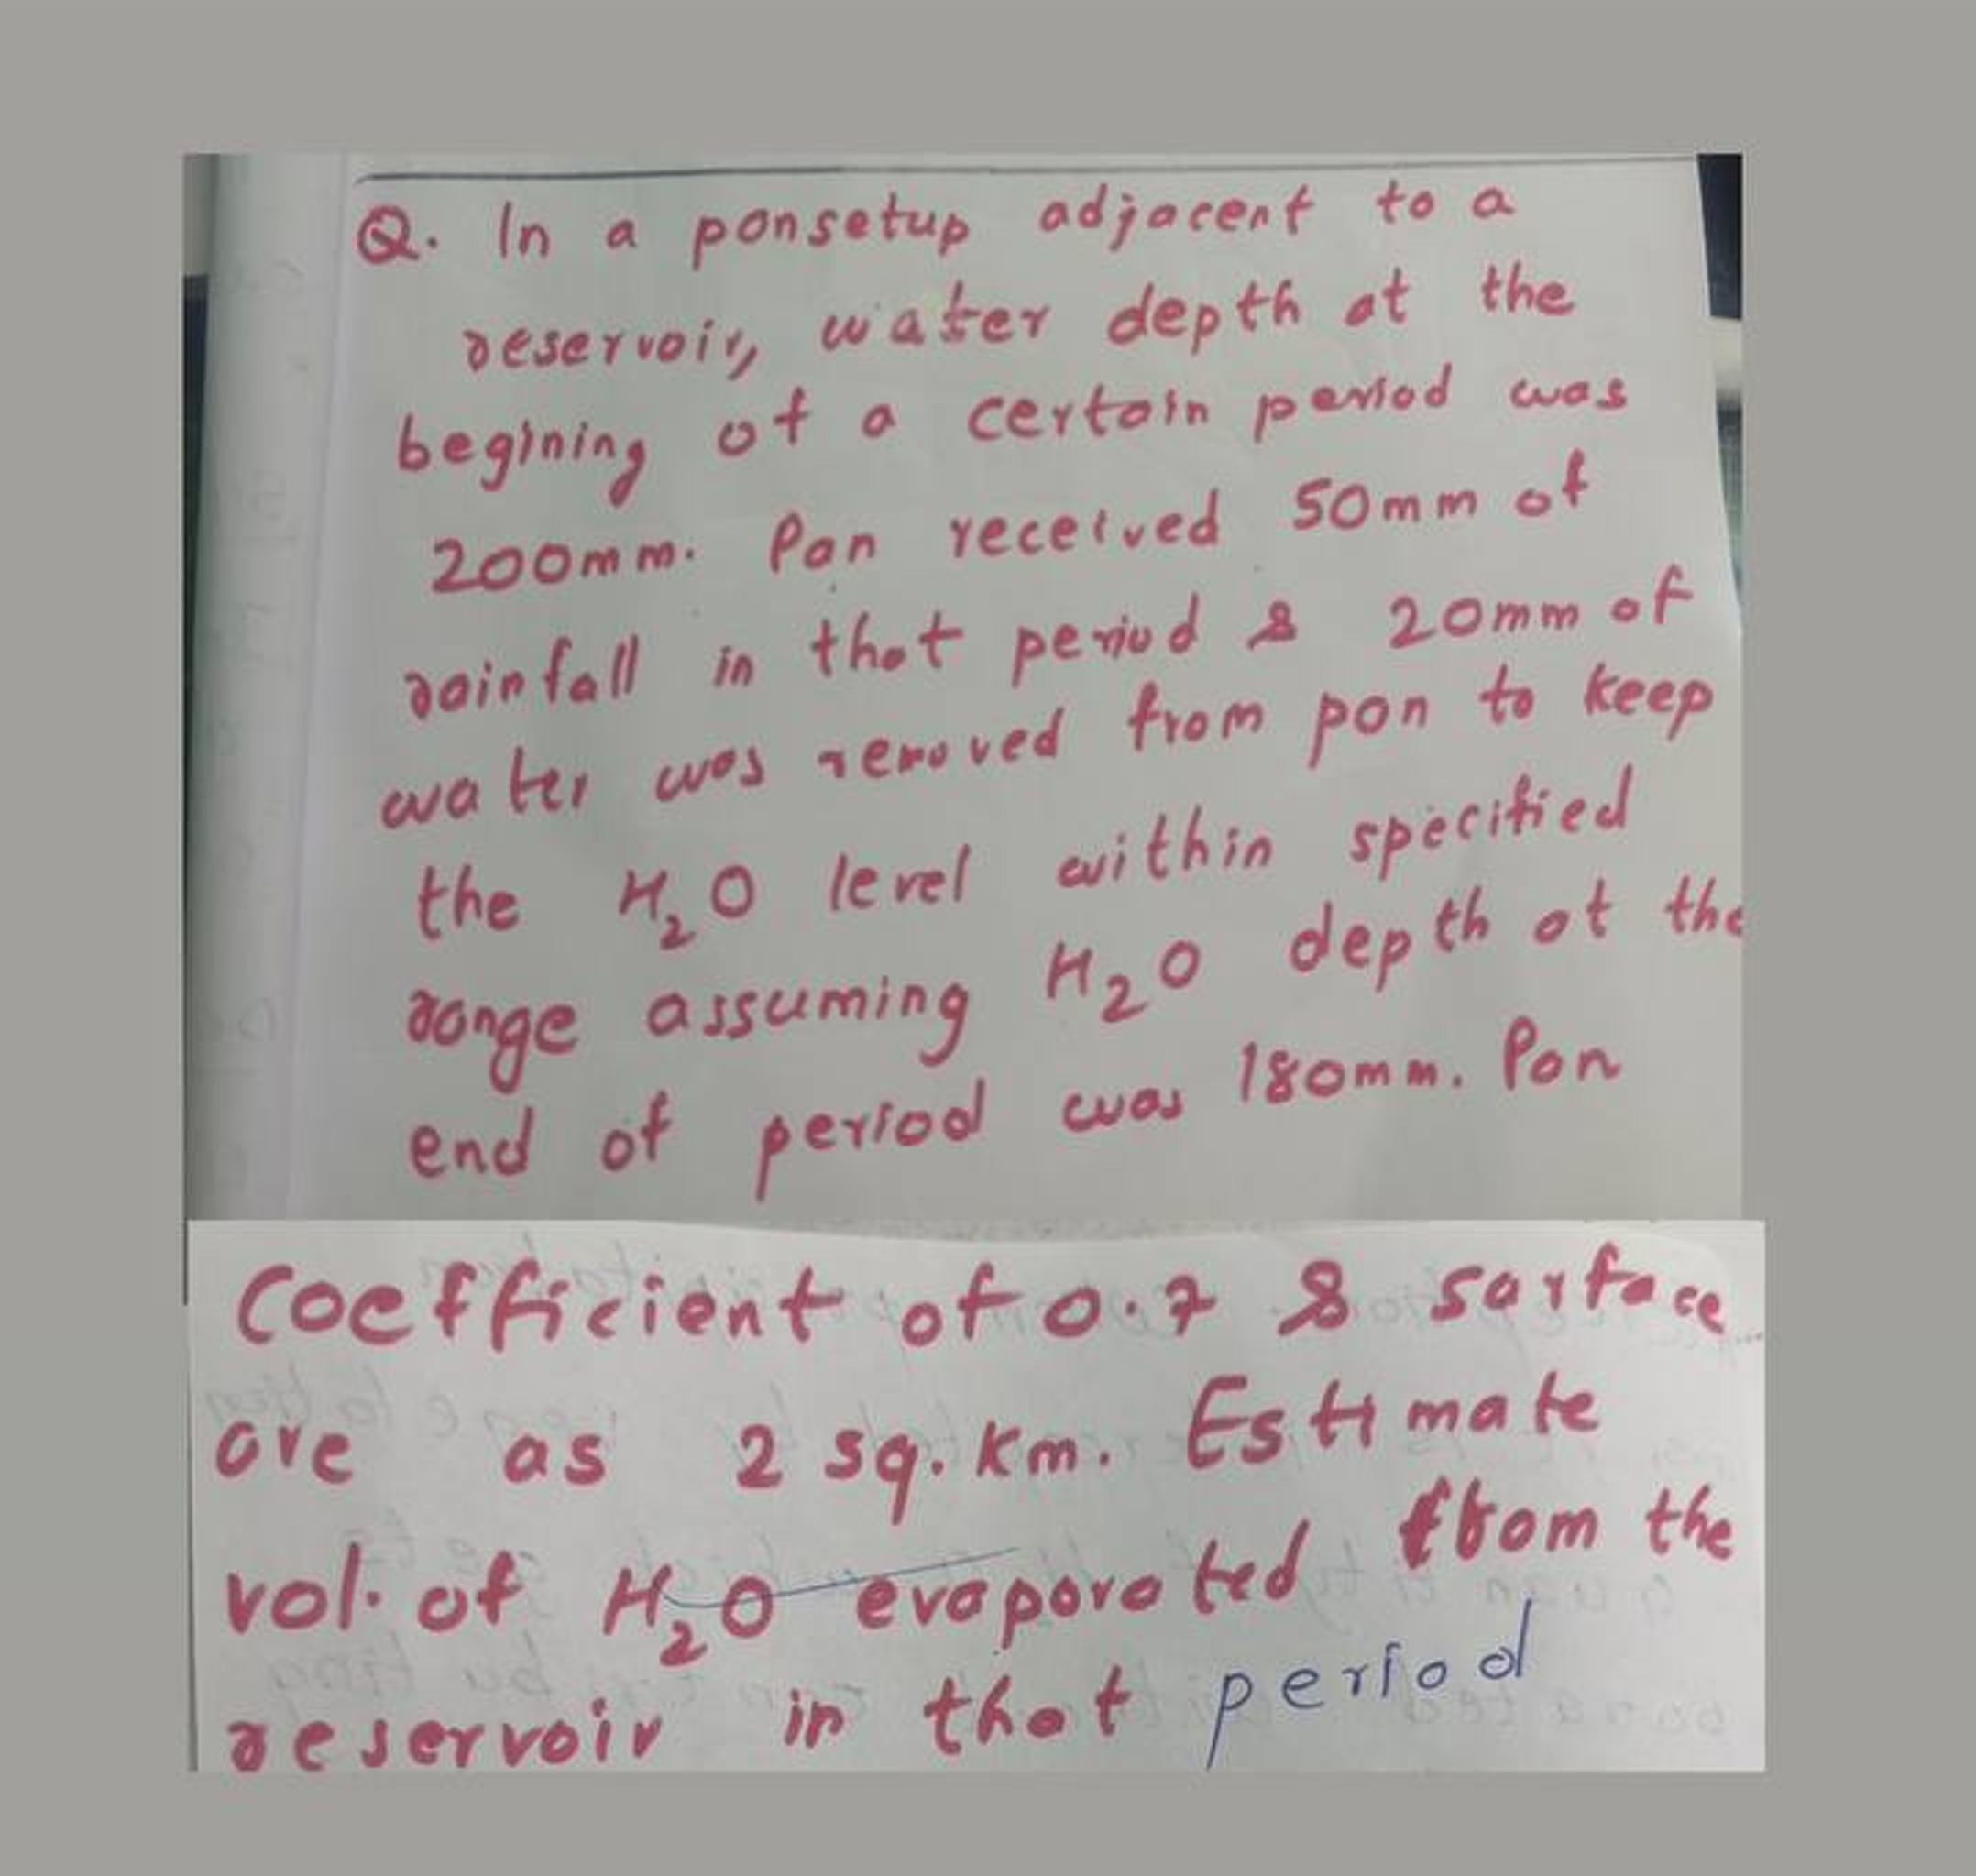 Q. In a pansetup adjacent to a
reservoir, water depth at the
begining of a certain period was
200mm. Pan received 50mm of
rainfall in that period & 20mm of
water was removed from pan to keep
the H₂O level within specified
range assuming H₂O depth at the
end of period was 180mm. Pan
Coefficient of 0.7 & sarface
are as 2 sq. km. Estimate
vol. of H₂O evaporated from the
reservoir in that period